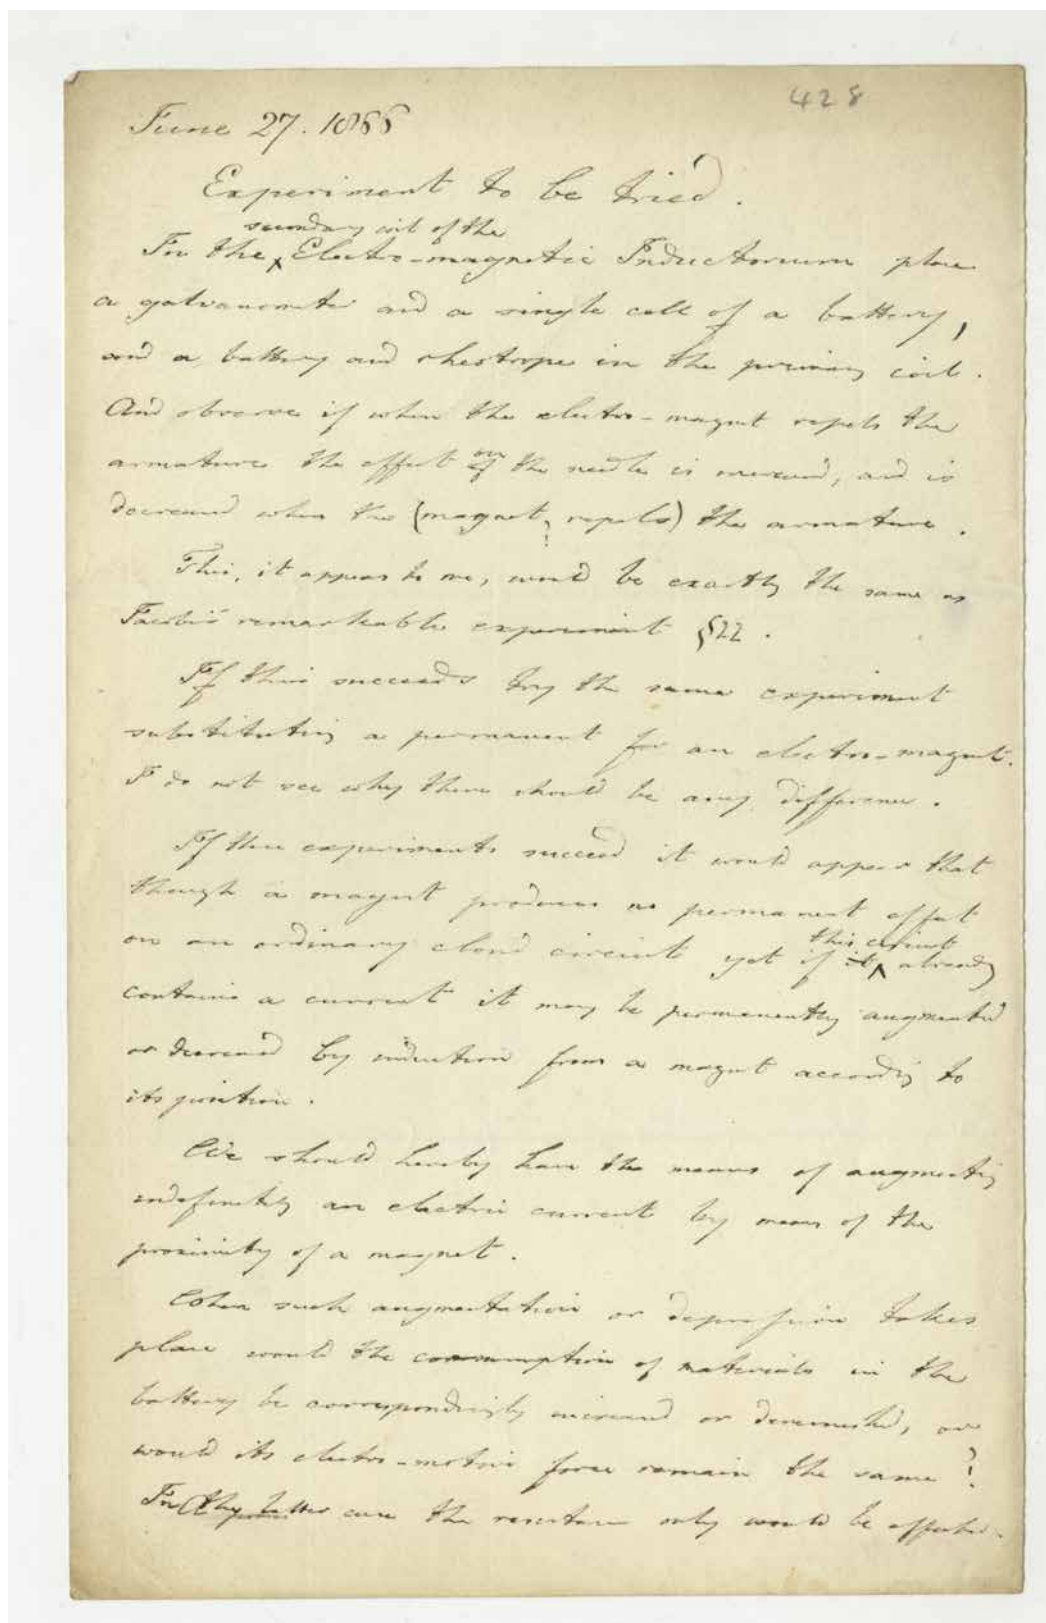 428
June 27. 1866
Experiment to be tried.
secondary coil of the
In the ‸ Electro-magnetic Inductorium place
a galvanometer and a single cell of a battery,
and a battery and rheotrope in the primary coil.
And observe if when the electro-magnet repels the
on
armature the effect of the needle is increased, and is
decreased when the (magnet repels) the armature.
This, it appears to me, would be exactly the same as
Jacobi's remarkable experiment §22.
If this succeeds try the same experiment
substituting a permanent for an electro-magnet.
I do not see why there should be any difference.
If these experiments succeed it would appear that
though a magnet produces no permanent effect
this circuit
on an ordinary closed circuit yet if it ‸ already
contains a current it may be permanently augmented
or decreased by induction from a magnet according to
its position.
We should hereby have the means of augmenting
indefinitely an electric current by means of the
proximity of a magnet.
When such augmentation or depression takes
place would the consumption of materials in the
battery be correspondingly increased or diminished, or
would its electro-motive force remain the same?
In the latter case the resistance only would be affected.